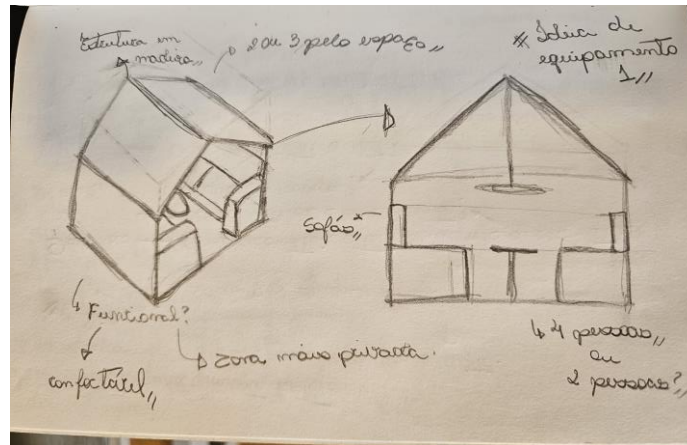 Estrutura em
madeira,,
2 ou 3 pelo espaço,,
* Ideia de
equipamento
1,,
Sofás,,
Funcional?
confortável,,
zona mais privada.
4 pessoas,,
ou
2 pessoas?,,